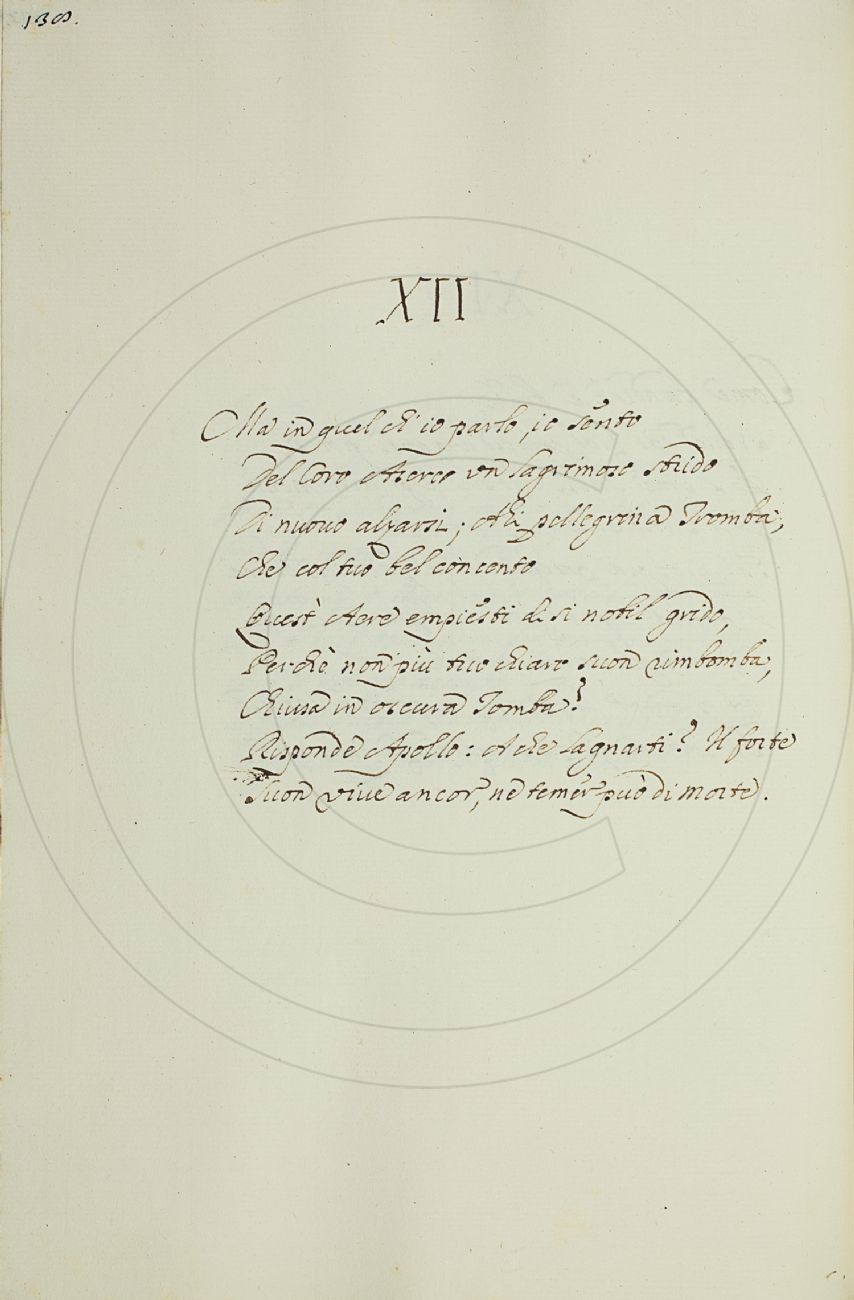 130.
XII
Ma in quel ch'io parlo, io sento
Del Coro Aereo un lagrimoso strido
Di nuovo alzarsi; Ahi pellegrina Tromba,
Che col tuo bel concento
Quest'Aere empiesti di si nobil grido,
Perchè non più tuo chiaro suon rimbomba,
Chiusa in oscura Tomba?
Risponde Apollo: A che lagnarti? Il forte
Suon vive ancor, ne temer può di morte.